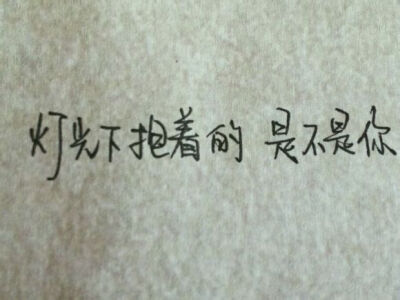 灯光下抱着的 是不是你